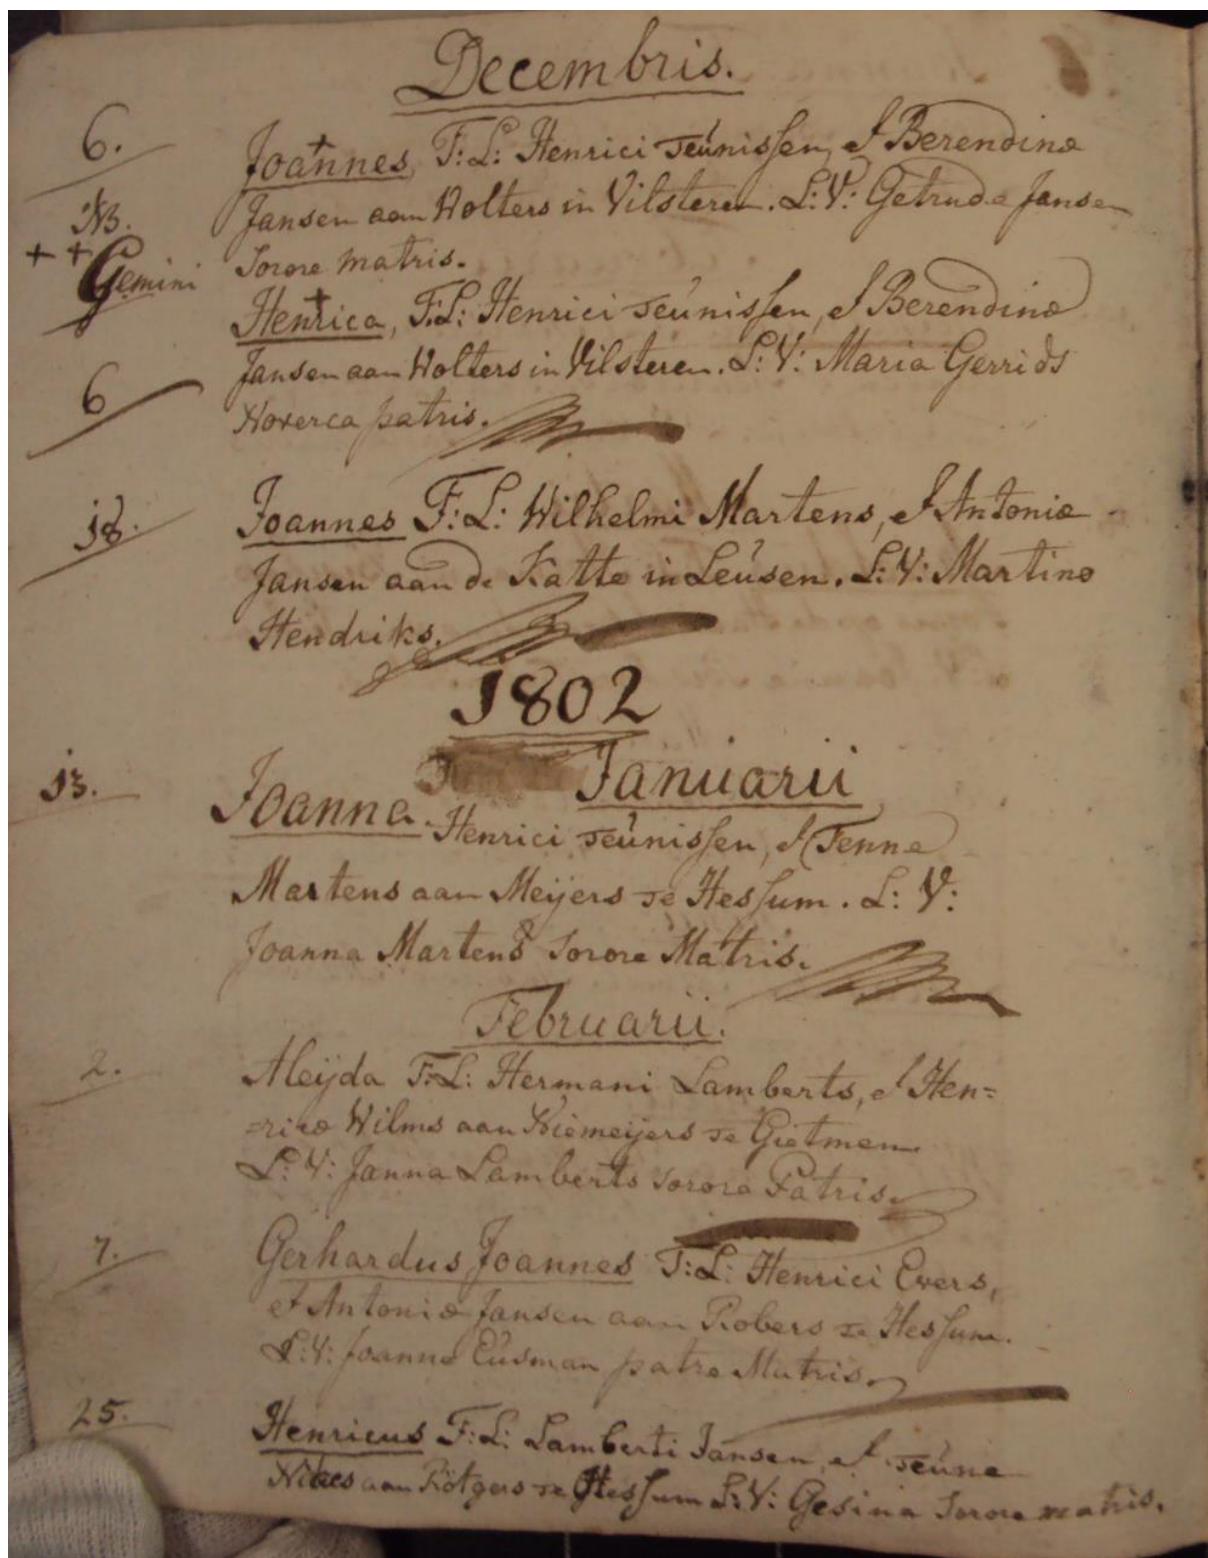 Decembris.
6. Joannes, F: L: Henrici Teúnissen, et Berendinæ
NB. Jansen aan Wolters in Vilsteren. L: V: Getrude Jansen
++ Gemini Sorore Matris.
Henrica, F: L: Henrici Teúnissen, et Berendinæ
6 Jansen aan Wolters in Vilsteren. L: V: Maria Gerrids
Noverca patris.
18. Joannes F: L: Wilhelmi Martens, et Antoniæ
Jansen aan de Katte in Leúsen. L: V: Martino
Hendriks.
1802
Januarii
13. Joanna. Henrici Teúnissen, et Fenne
Martens aan Meijers te Hessum. L: V:
Joanna Martens Sorore Matris.
Februarii.
2. Aleijda F: L: Hermani Lamberts, et Hen=
=ricæ Wilms aan Niemeijers te Gietmen
L: V: Janna Lamberts Sorore Patris.
7. Gerhardus Joannes F: L: Henrici Evers,
et Antoniæ Jansen aan Robers te Hessum.
L: V: Joanne Eúsman patre Matris.
25. Henricus F: L: Lamberti Jansen, et Teúne
aan Rötgers te Hessum L: V: Gesina Sorore matris.